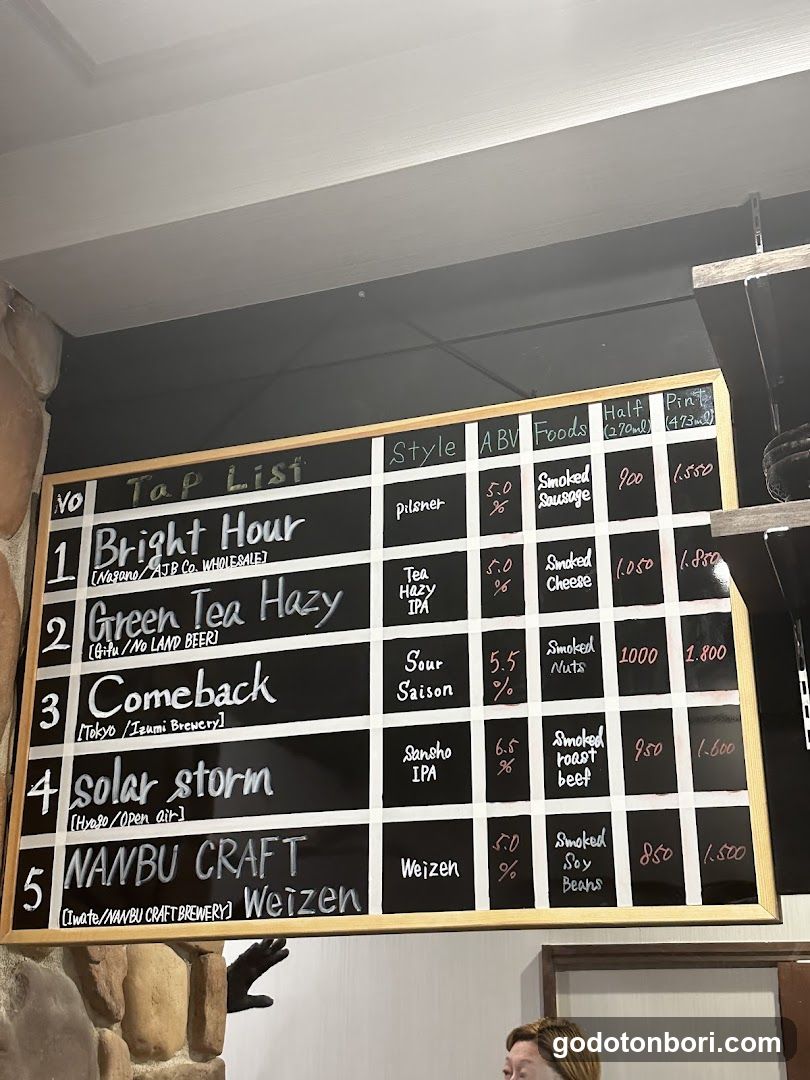 No Tap List Style ABV Foods Half (270ml) Pint (473ml)
1 Bright Hour [Nagano/AJB Co. WHOLESALE] pilsner 5.0 % Smoked Sausage 900 1.550
2 Green Tea Hazy [Gifu/No LAND BEER] Tea Hazy IPA 5.0 % Smoked Cheese 1.050 1.850
3 Comeback [Tokyo /Izumi Brewery] Sour Saison 5.5 % Smoked Nuts 1000 1.800
4 solar storm [Hyogo/Open air] Sansho IPA 6.5 % Smoked roast beef 950 1.600
5 NANBU CRAFT Weizen [Iwate/NANBU CRAFT BREWERY] Weizen 5.0 % Smoked Soy Beans 850 1.500
godotonbori.com